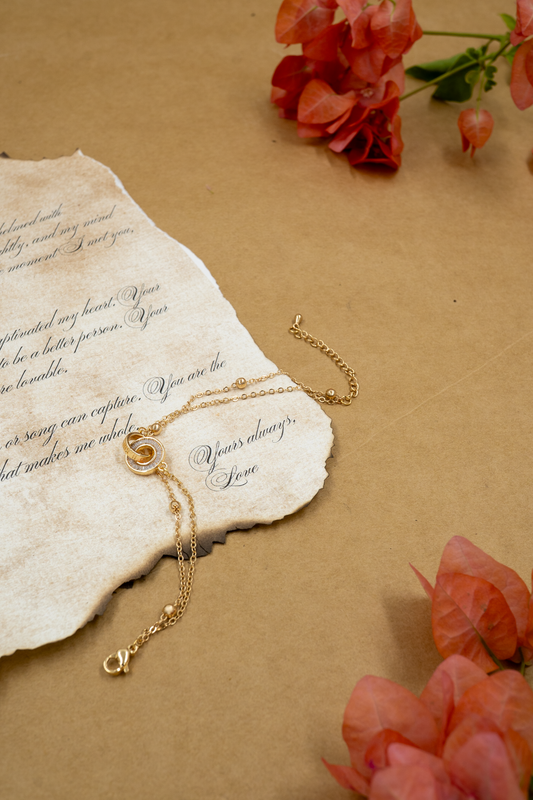 helmed with
ghtly, and my mind
moment I met you.
captivated my heart. Your
to be a better person. Your
re lovable.
or song can capture. You are the
hat makes me whole.
Yours always,
Love